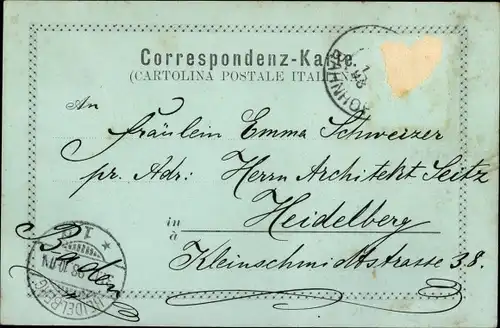 Correspondenz-Karte.
(CARTOLINA POSTALE ITALIANA
An
Fräulein Emma Schwerzer
pr. Adr: Herrn Architekt Seitz
in
a
Heidelberg
Kleinschmidtstrasse 38.
Baden
HEIDELBERG
BAHNHOF